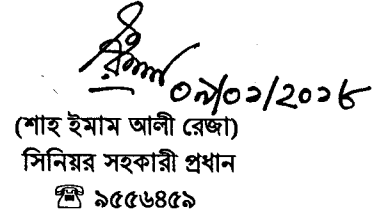 ০৯/০১/২০১৮
(শাহ ইমাম আলী রেজা)
সিনিয়র সহকারী প্রধান
☎ ৯৫৫৬৪৫৯